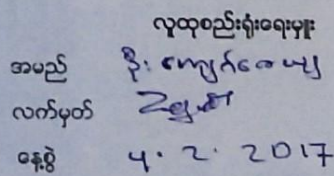 လူထုစည်းရုံးရေးမှူး
အမည် ဦး
လက်မှတ်
နေ့စွဲ 4. 2. 2017